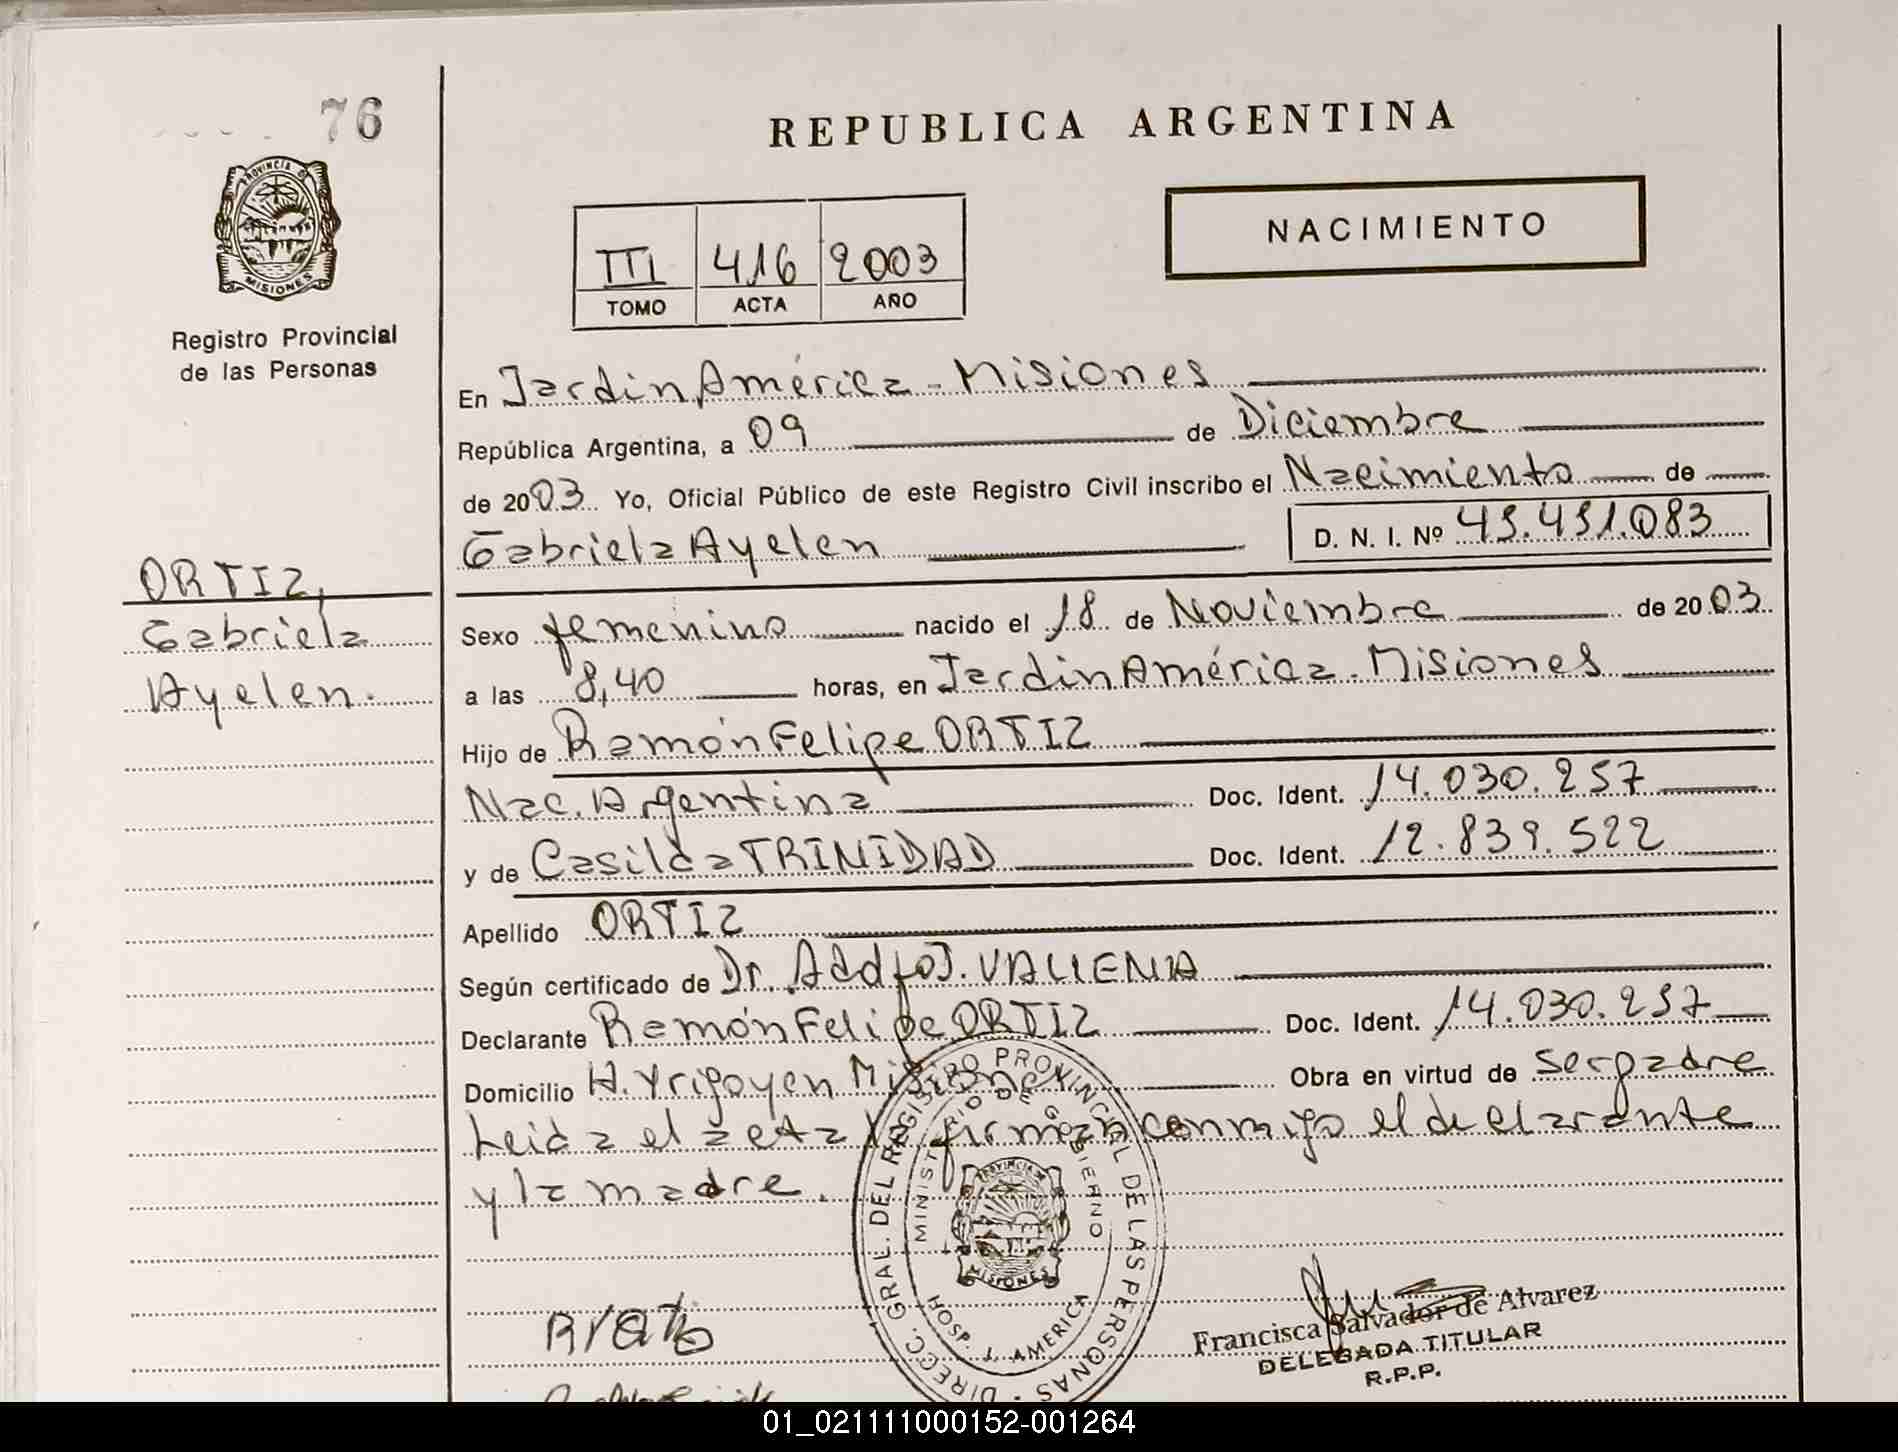 76
REPUBLICA ARGENTINA
PROVINCIA DE
MISIONES
Registro Provincial
de las Personas
NACIMIENTO
III 416 2003
TOMO ACTA AÑO
En Jardin América - Misiones
República Argentina, a 09 de Diciembre
de 2003 Yo, Oficial Público de este Registro Civil inscribo el Nacimiento de
Gabriela Ayelen D. N. I. Nº 45.451.083
ORTIZ,
Gabriela
Ayelen.
Sexo femenino nacido el 18 de Noviembre de 2003
a las 8,40 horas, en Jardin América - Misiones
Hijo de Ramón Felipe ORTIZ
Nac. Argentina Doc. Ident. 14.030.257
y de Casilda TRINIDAD Doc. Ident. 12.839.522
Apellido ORTIZ
Según certificado de Dr. J.
Declarante Ramón Felipe ORTIZ Doc. Ident. 14.030.257
Domicilio H. Yrigoyen Misiones Obra en virtud de ser padre
Leida el acta firman conmigo el declarante
y la madre.
DIRECC. GRAL. DEL REGISTRO PROVINCIAL DE LAS PERSONAS
MINISTERIO DE GOBIERNO
PROVINCIA DE
MISIONES
HOSP. J. AMERICA
Francisca Salvador de Alvarez
DELEGADA TITULAR
R.P.P.
01_021111000152-001264